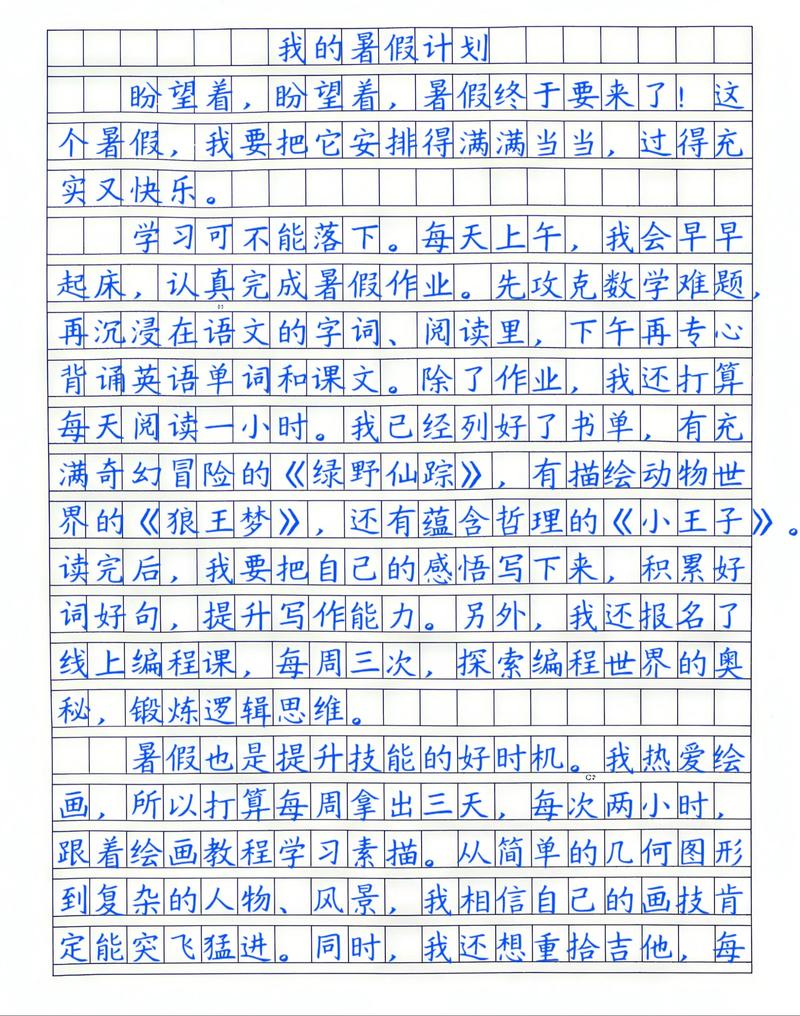 我的暑假计划
盼望着，盼望着，暑假终于要来了！这
个暑假，我要把它安排得满满当当，过得充
实又快乐。
学习可不能落下。每天上午，我会早早
起床，认真完成暑假作业。先攻克数学难题，
再沉浸在语文的字词、阅读里，下午再专心
背诵英语单词和课文。除了作业，我还打算
每天阅读一小时。我已经列好了书单，有充
满奇幻冒险的《绿野仙踪》，有描绘动物世
界的《狼王梦》，还有蕴含哲理的《小王子》。
读完后，我要把自己的感悟写下来，积累好
词好句，提升写作能力。另外，我还报名了
线上编程课，每周三次，探索编程世界的奥
秘，锻炼逻辑思维。
暑假也是提升技能的好时机。我热爱绘
画，所以打算每周拿出三天，每次两小时，
跟着绘画教程学习素描。从简单的几何图形
到复杂的人物、风景，我相信自己的画技肯
定能突飞猛进。同时，我还想重拾吉他，每